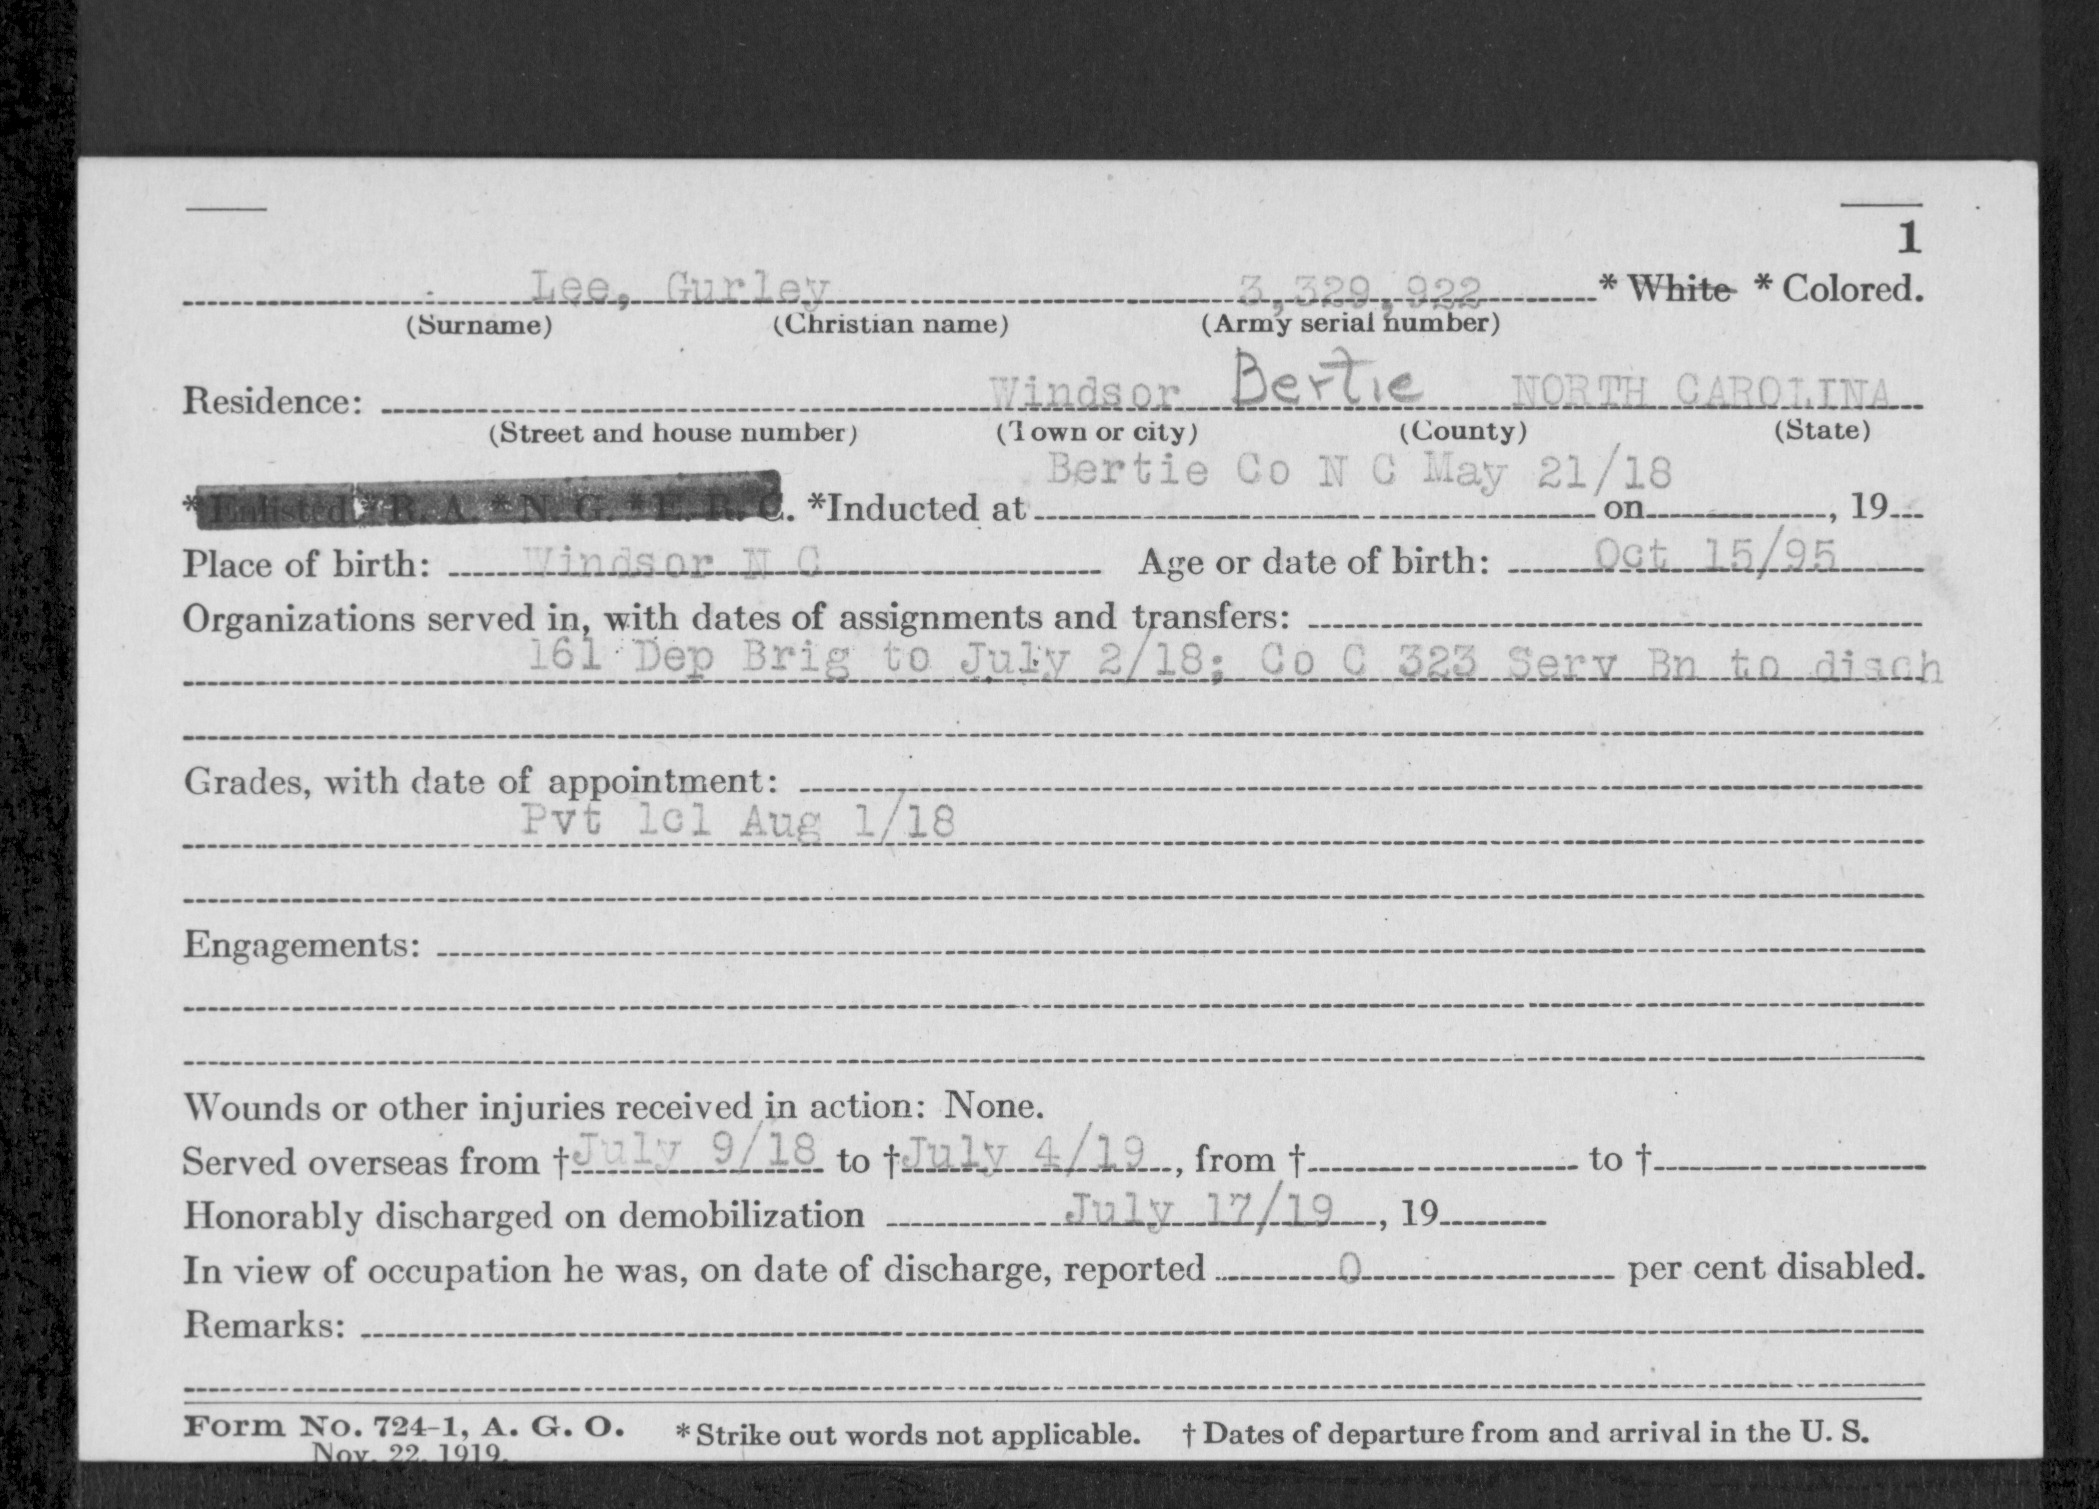 1
Lee, Gurley 3,329,922 * White * Colored.
(Surname) (Christian name) (Army serial number)
Residence: Windsor Bertie NORTH CAROLINA
(Street and house number) (Town or city) (County) (State)
Bertie Co N C May 21/18
*Enlisted * R. A. * N. G. * E. R. C. *Inducted at on , 19
Place of birth: Windsor N C Age or date of birth: Oct 15/95
Organizations served in, with dates of assignments and transfers:
161 Dep Brig to July 2/18; Co C 323 Serv Bn to disch
Grades, with date of appointment:
Pvt 1cl Aug 1/18
Engagements:
Wounds or other injuries received in action: None.
Served overseas from † July 9/18 to † July 4/19, from † to †
Honorably discharged on demobilization July 17/19, 19
In view of occupation he was, on date of discharge, reported 0 per cent disabled.
Remarks:
Form No. 724-1, A. G. O. * Strike out words not applicable. † Dates of departure from and arrival in the U. S.
Nov. 22, 1919.